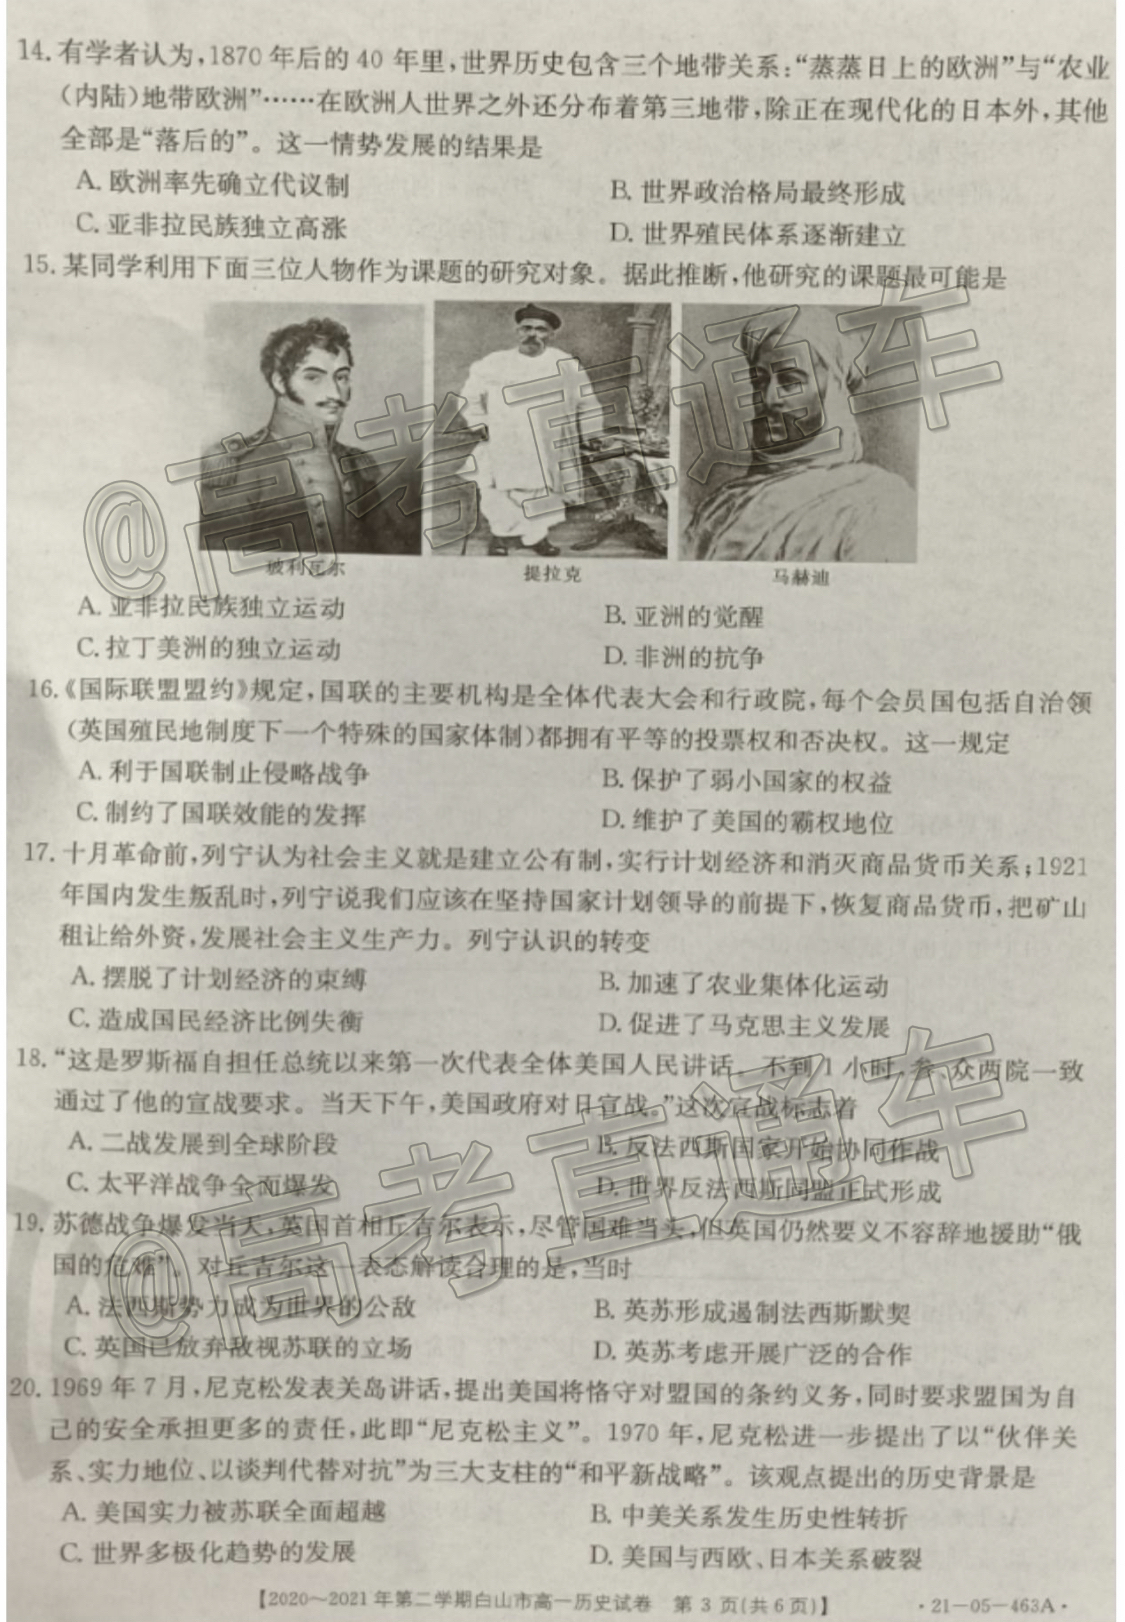 14. 有学者认为,1870 年后的 40 年里,世界历史包含三个地带关系:“蒸蒸日上的欧洲”与“农业
(内陆)地带欧洲”……在欧洲人世界之外还分布着第三地带,除正在现代化的日本外,其他
全部是“落后的”。这一情势发展的结果是
A. 欧洲率先确立代议制 B. 世界政治格局最终形成
C. 亚非拉民族独立高涨 D. 世界殖民体系逐渐建立
15. 某同学利用下面三位人物作为课题的研究对象。据此推断,他研究的课题最可能是
玻利瓦尔 提拉克 马赫迪
A. 亚非拉民族独立运动 B. 亚洲的觉醒
C. 拉丁美洲的独立运动 D. 非洲的抗争
16.《国际联盟盟约》规定,国联的主要机构是全体代表大会和行政院,每个会员国包括自治领
(英国殖民地制度下一个特殊的国家体制)都拥有平等的投票权和否决权。这一规定
A. 利于国联制止侵略战争 B. 保护了弱小国家的权益
C. 制约了国联效能的发挥 D. 维护了美国的霸权地位
17. 十月革命前,列宁认为社会主义就是建立公有制,实行计划经济和消灭商品货币关系;1921
年国内发生叛乱时,列宁说我们应该在坚持国家计划领导的前提下,恢复商品货币,把矿山
租让给外资,发展社会主义生产力。列宁认识的转变
A. 摆脱了计划经济的束缚 B. 加速了农业集体化运动
C. 造成国民经济比例失衡 D. 促进了马克思主义发展
18. “这是罗斯福自担任总统以来第一次代表全体美国人民讲话。不到 1 小时,参、众两院一致
通过了他的宣战要求。当天下午,美国政府对日宣战。”这次宣战标志着
A. 二战发展到全球阶段 B. 反法西斯国家开始协同作战
C. 太平洋战争全面爆发 D. 世界反法西斯同盟正式形成
19. 苏德战争爆发当天,英国首相丘吉尔表示,尽管国难当头,但英国仍然要义不容辞地援助“俄
国的危难”。对丘吉尔这一表态解读合理的是,当时
A. 法西斯势力成为世界的公敌 B. 英苏形成遏制法西斯默契
C. 英国已放弃敌视苏联的立场 D. 英苏考虑开展广泛的合作
20. 1969 年 7 月,尼克松发表关岛讲话,提出美国将恪守对盟国的条约义务,同时要求盟国为自
己的安全承担更多的责任,此即“尼克松主义”。1970 年,尼克松进一步提出了以“伙伴关
系、实力地位、以谈判代替对抗”为三大支柱的“和平新战略”。该观点提出的历史背景是
A. 美国实力被苏联全面超越 B. 中美关系发生历史性转折
C. 世界多极化趋势的发展 D. 美国与西欧、日本关系破裂
【2020~2021 年第二学期白山市高一历史试卷 第 3 页(共 6 页)】 ·21-05-463A·
@高考直通车
@高考直通车